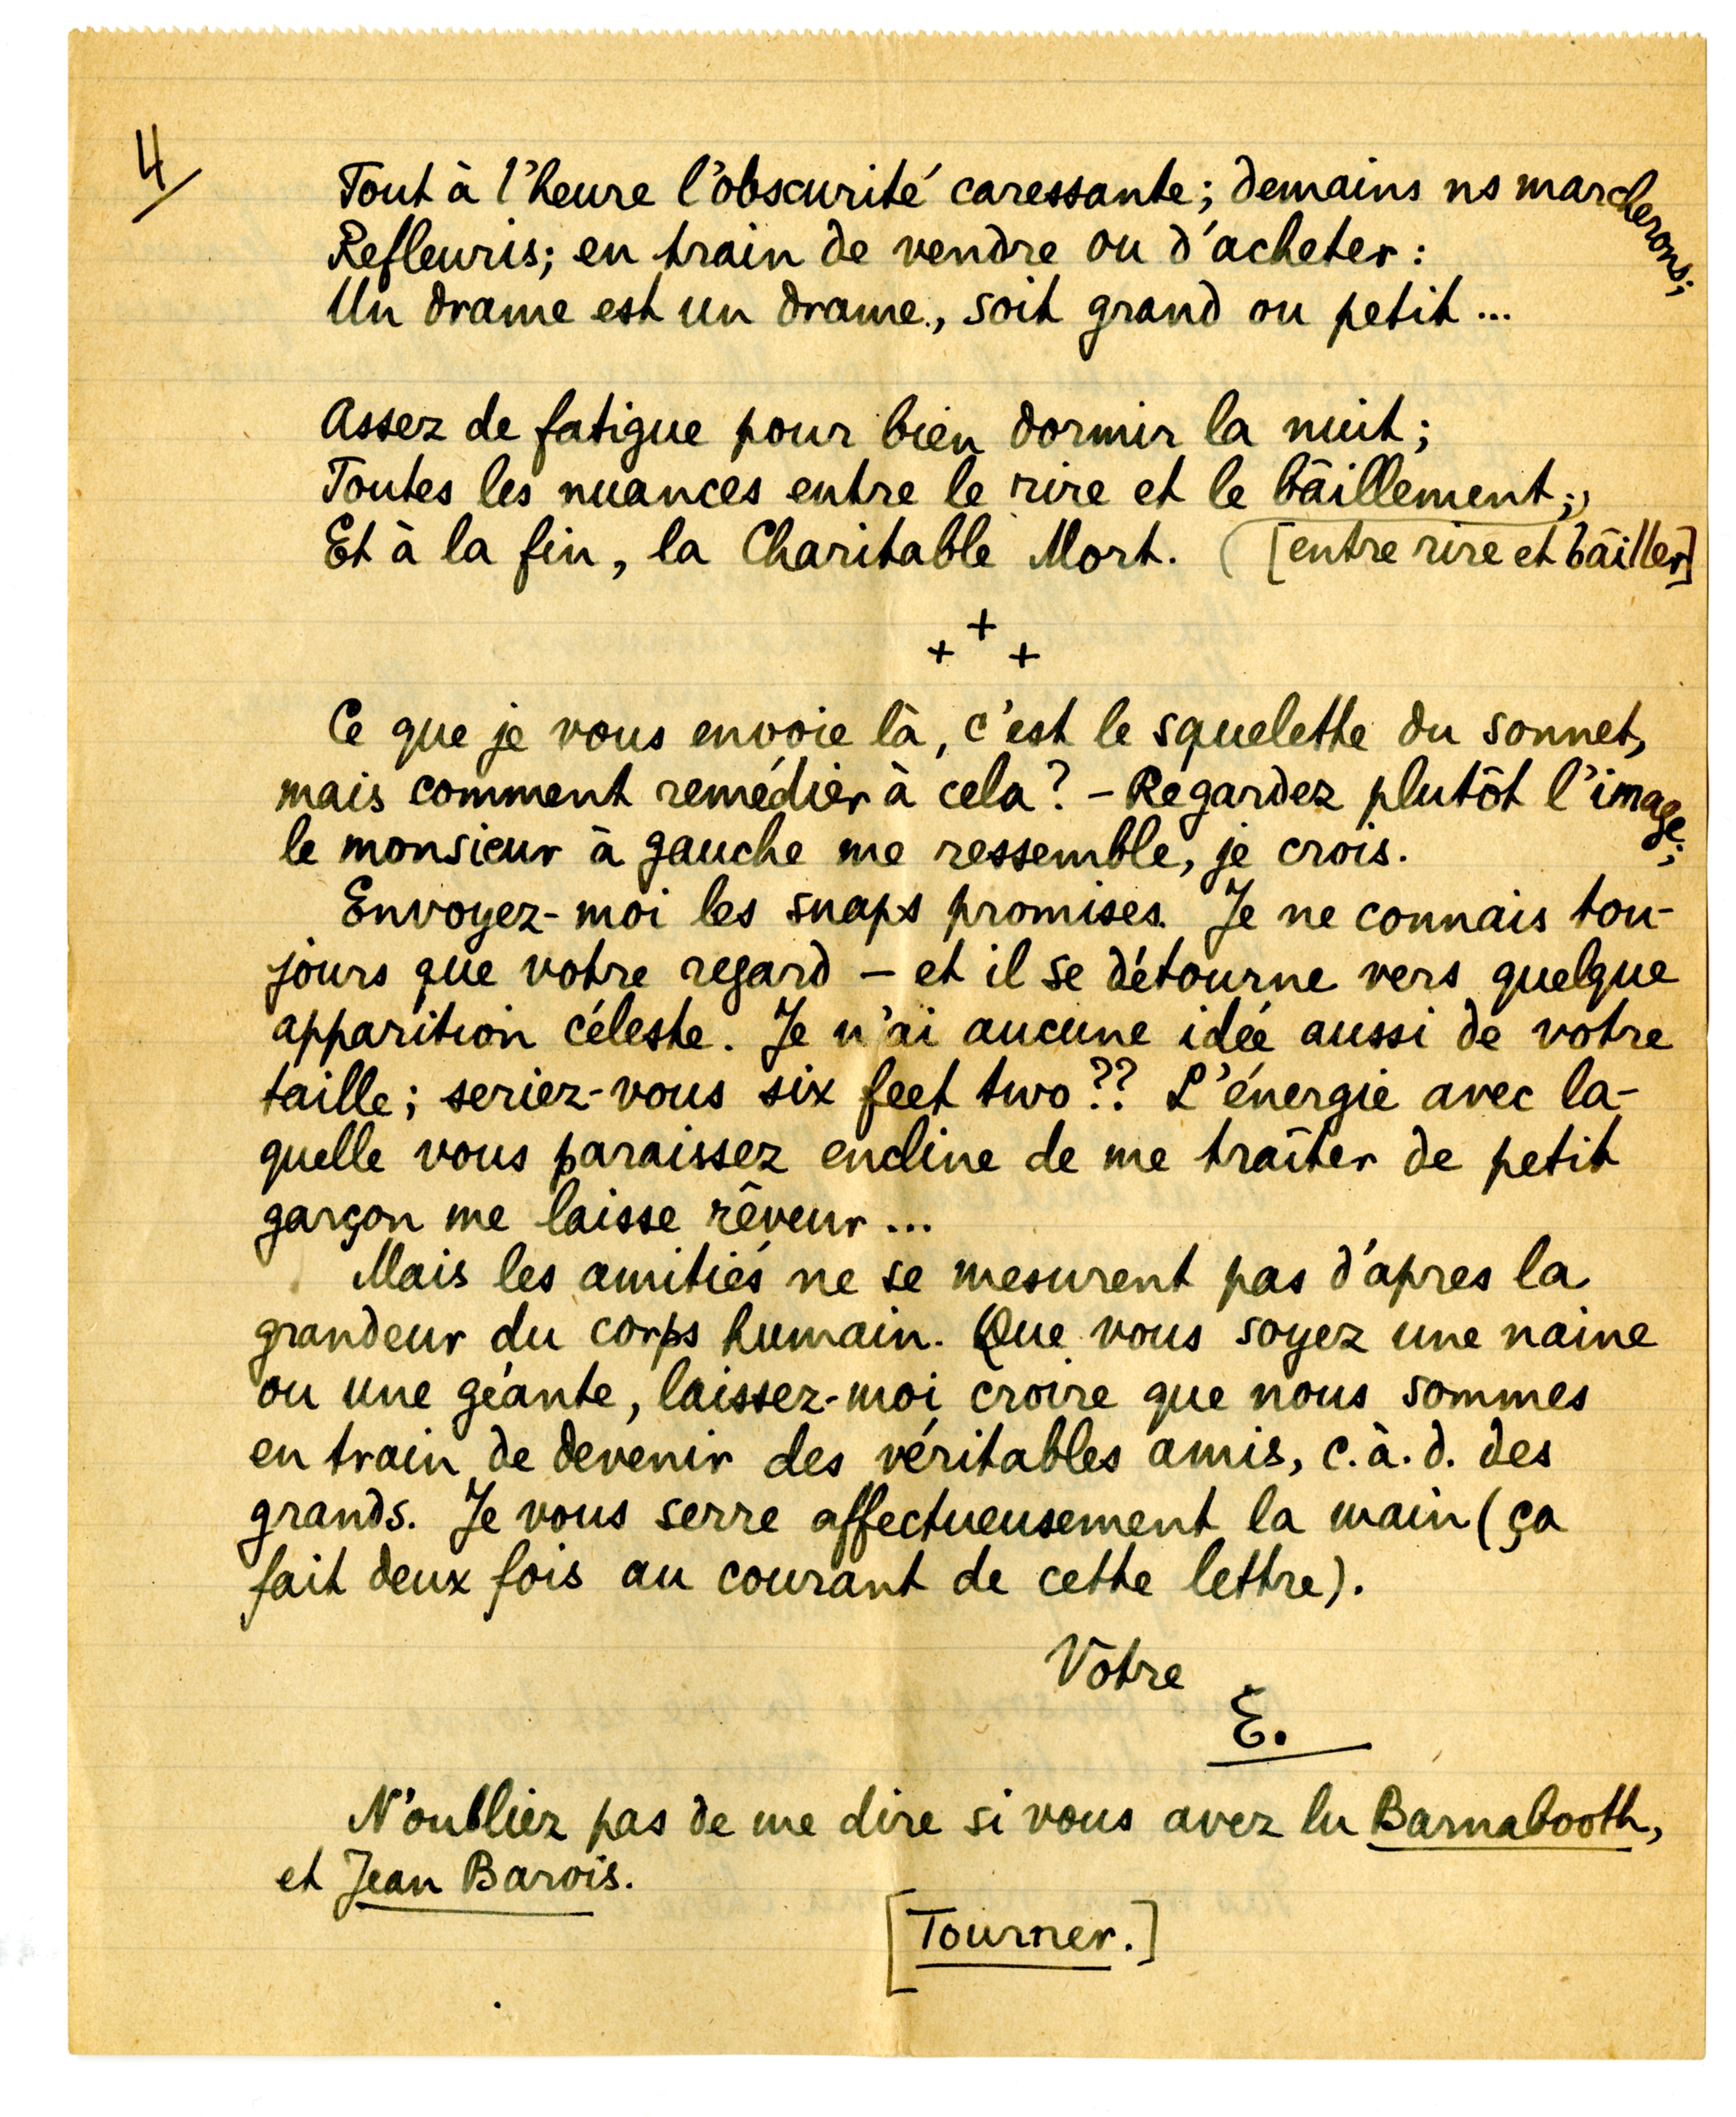 4/
Tout à l'heure l'obscurité caressante; demains ns marcherons;
Refleuris; en train de vendre ou d'acheter:
Un drame est un drame, soit grand ou petit...
Assez de fatigue pour bien dormir la nuit;
Toutes les nuances entre le rire et le bâillement;
Et à la fin, la Charitable Mort. [entre rire et bâiller]
+ + +
Ce que je vous envoie là, c'est le squelette du sonnet,
mais comment remédier à cela? – Regardez plutôt l'image;
le monsieur à gauche me ressemble, je crois.
Envoyez-moi les snaps promises. Je ne connais tou-
jours que votre regard – et il se détourne vers quelque
apparition céleste. Je n'ai aucune idée aussi de votre
taille; seriez-vous six feet two?? L'énergie avec la-
quelle vous paraissez encline de me traîter de petit
garçon me laisse rêveur...
Mais les amitiés ne se mesurent pas d'apres la
grandeur du corps humain. Que vous soyez une naine
ou une géante, laissez-moi croire que nous sommes
en train de devenir des véritables amis, c.à.d. des
grands. Je vous serre affectueusement la main (ça
fait deux fois au courant de cette lettre).
Vôtre
E.
N'oubliez pas de me dire si vous avez lu Barnabooth,
et Jean Barois.
[Tourner.]